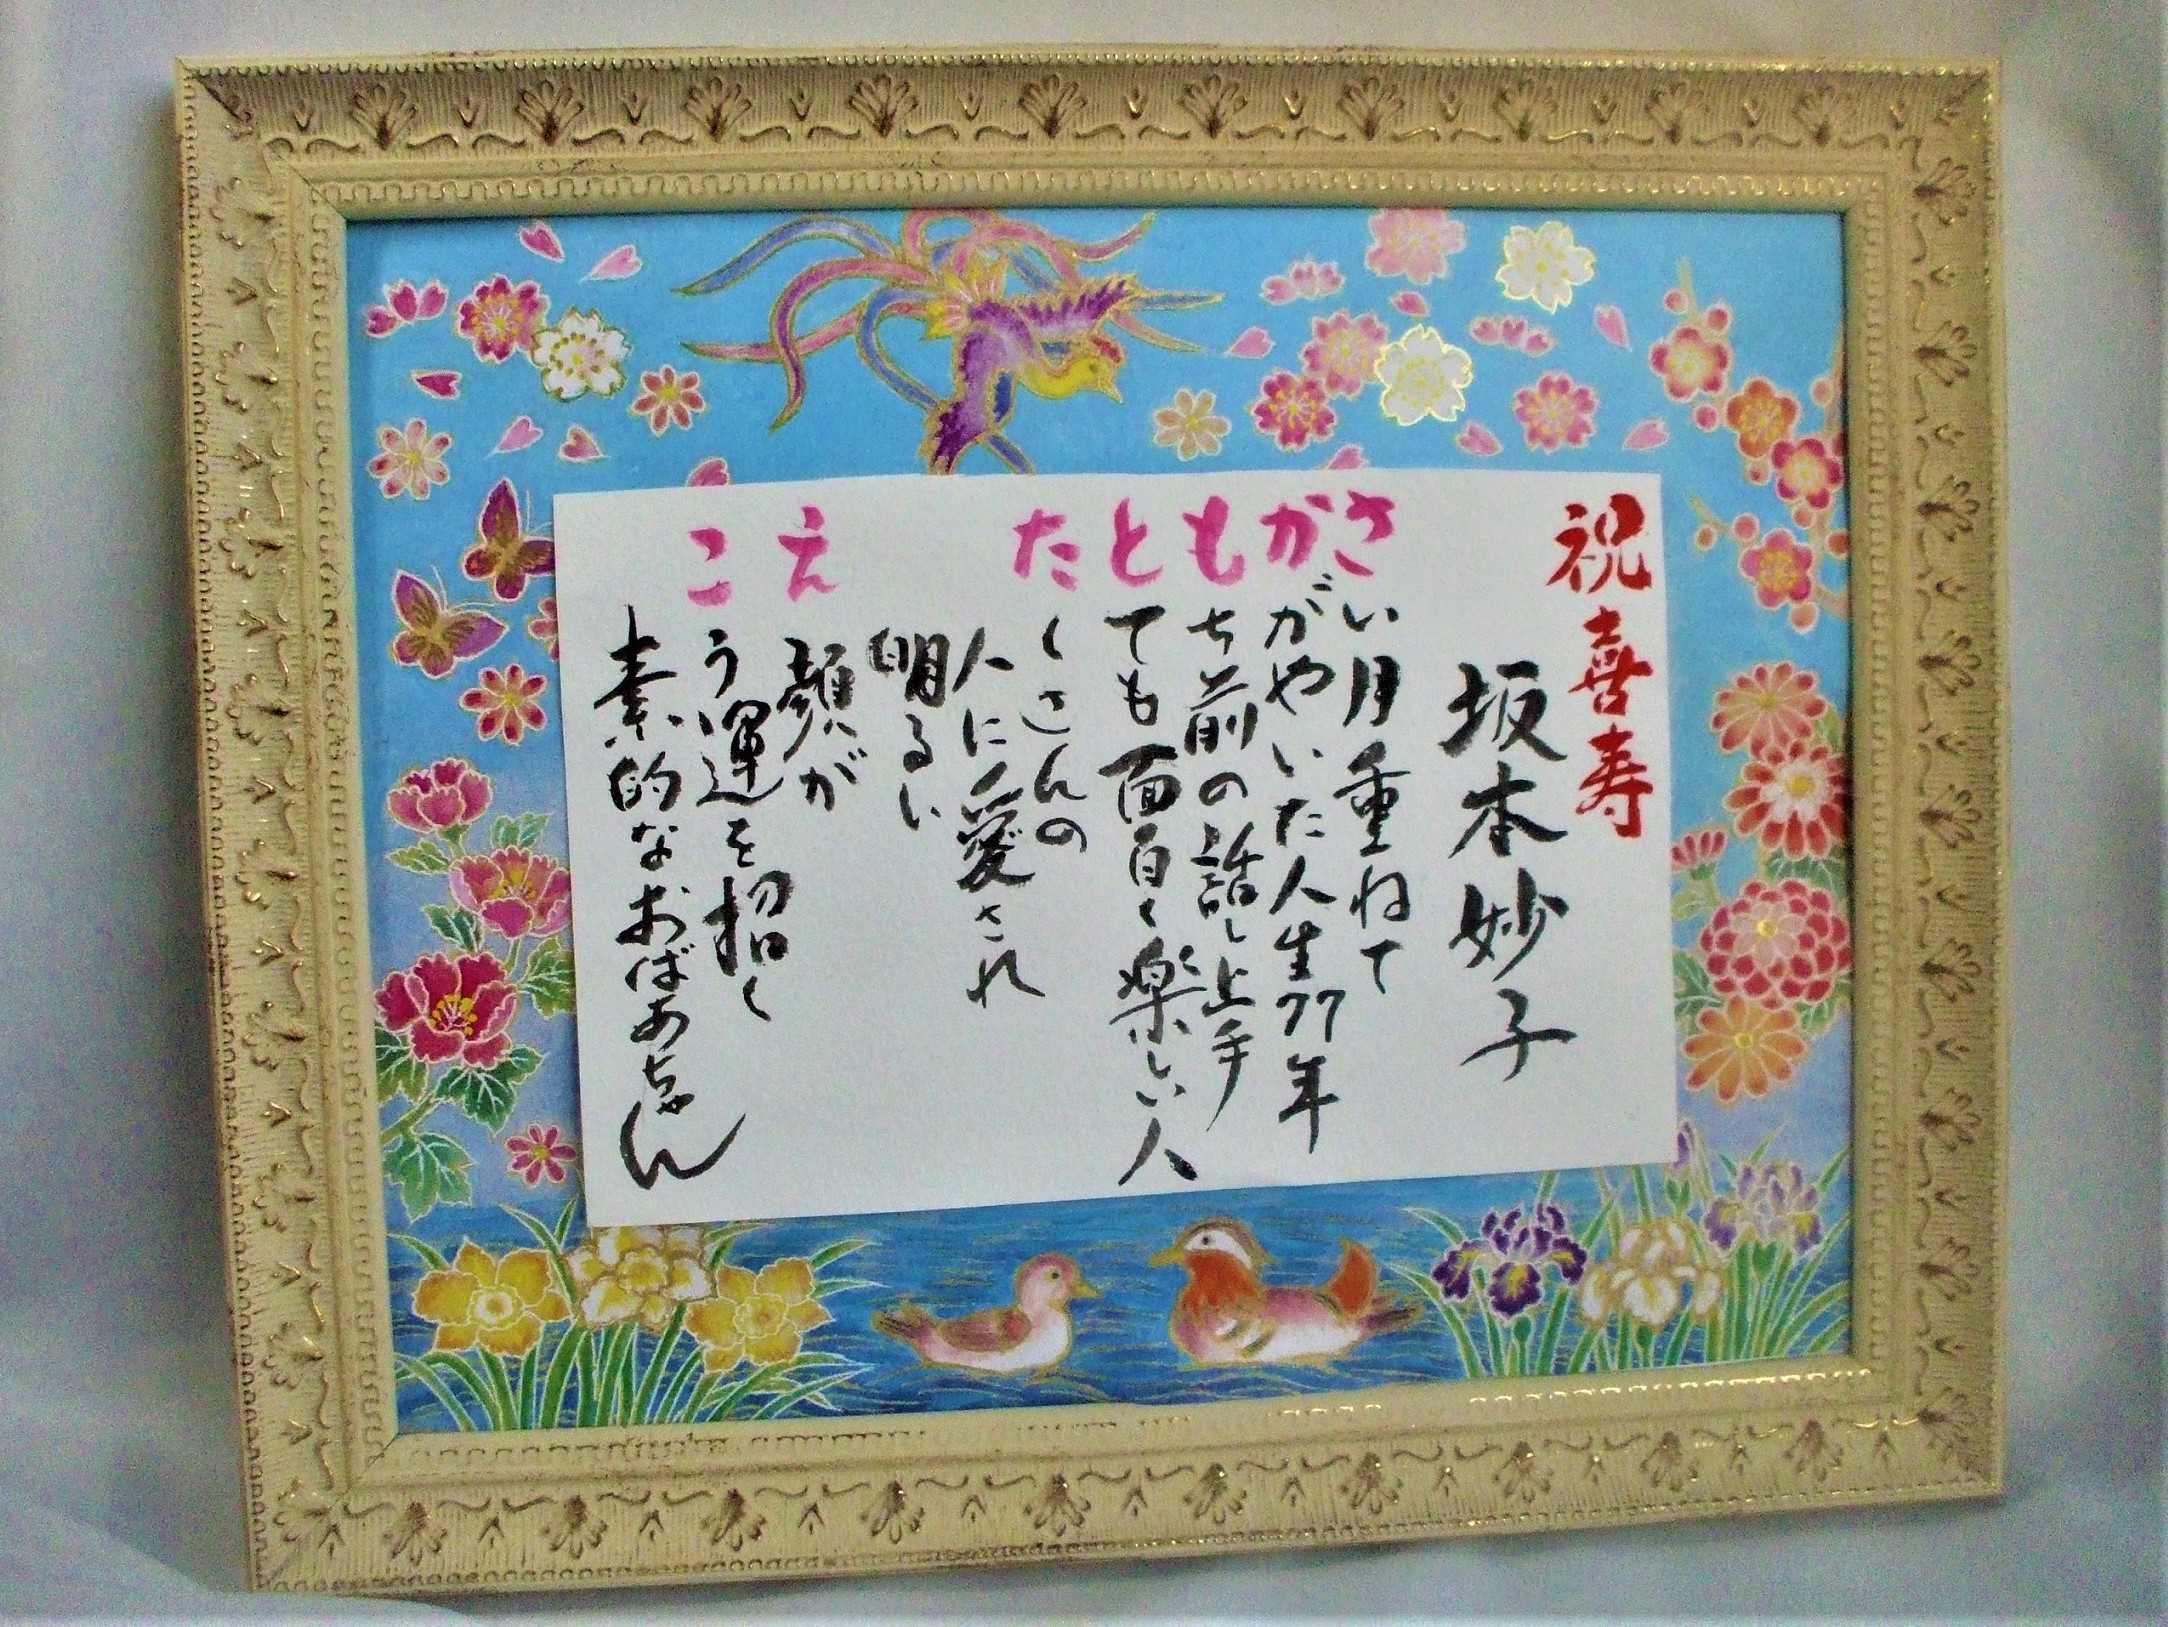 祝喜寿
坂本妙子
さい月重ねて
かがやいた人生77年
もち前の話し上手
とても面白く楽しい人
たくさんの
人に愛され
明るい
え顔が
こう運を招く
素的なおばあちゃん